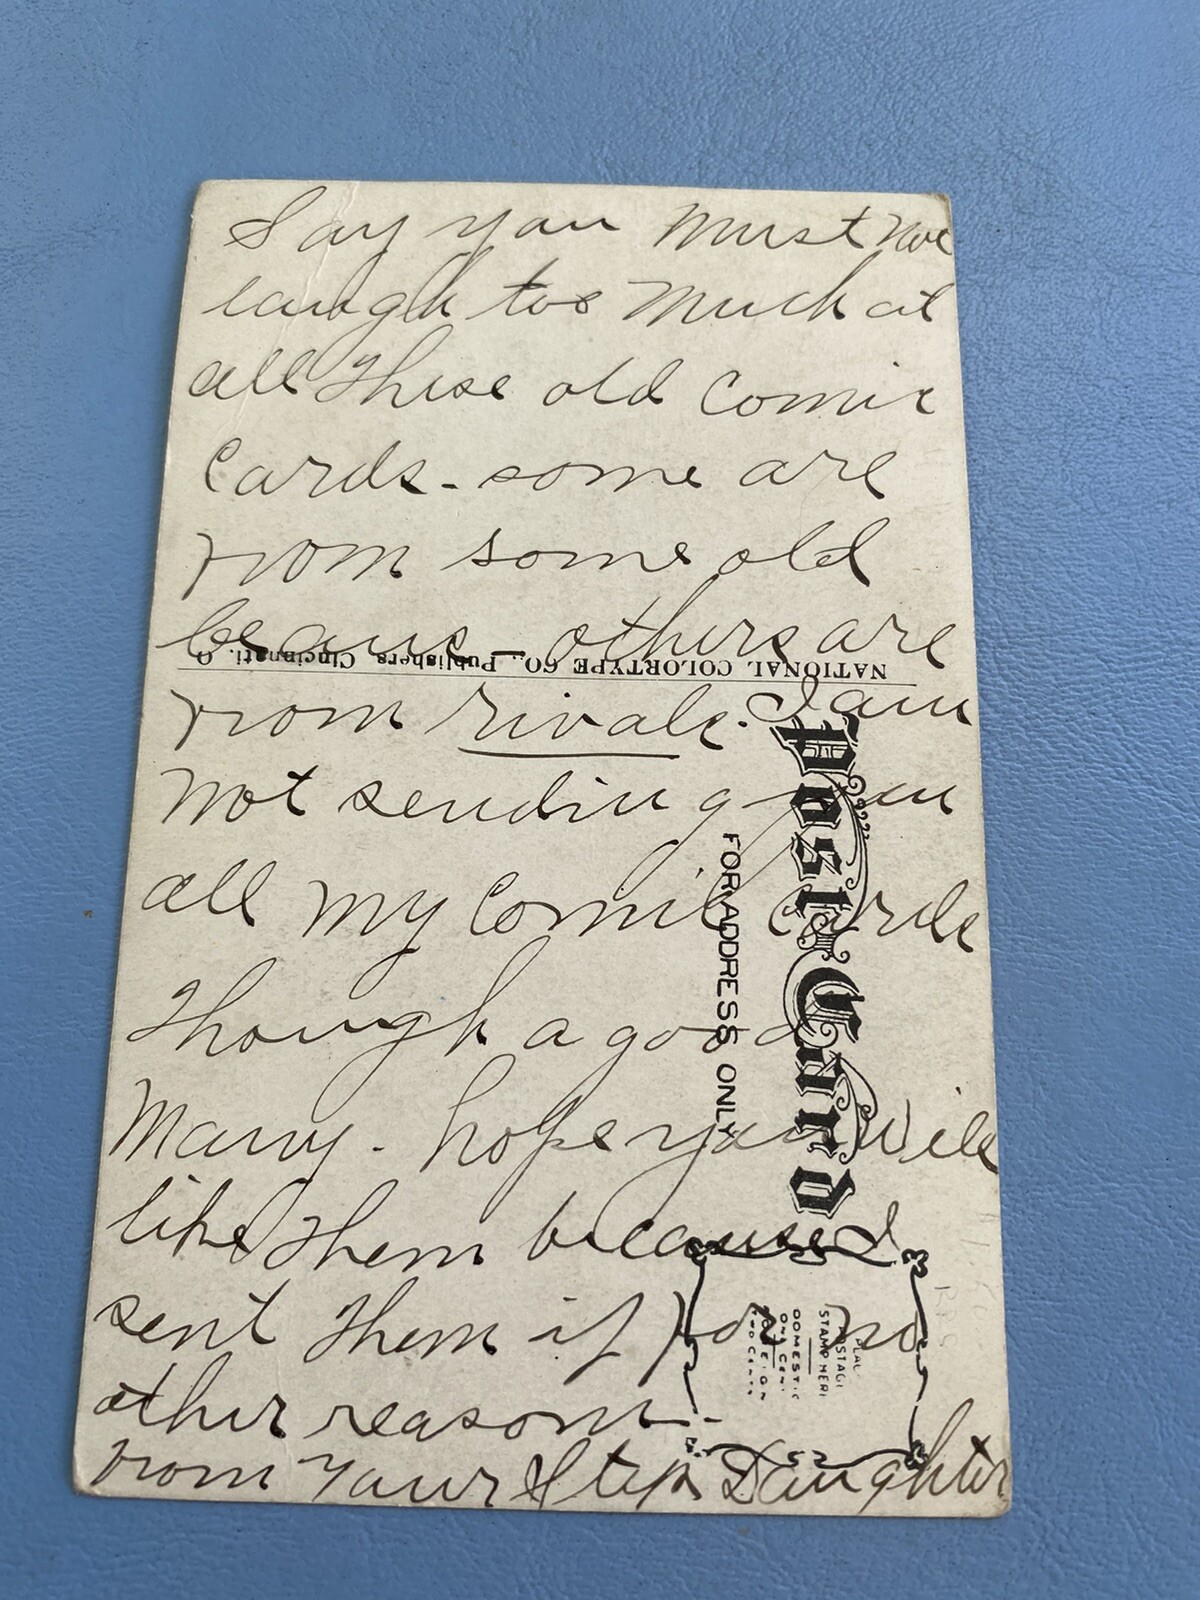 Say you must not
laugh too much at
all these old comic
cards - some are
from some old
beaus - others are
from rivals. I am
not sending you
all my comic cards
though a good
many - hope you will
like them because I
sent them if for no
other reason -
from your Step Daughter
NATIONAL COLORTYPE CO., Publishers, Cincinnati, O.
Post Card
FOR ADDRESS ONLY
STAMP HERE
DOMESTIC
ONE CENT
FOREIGN
TWO CENTS